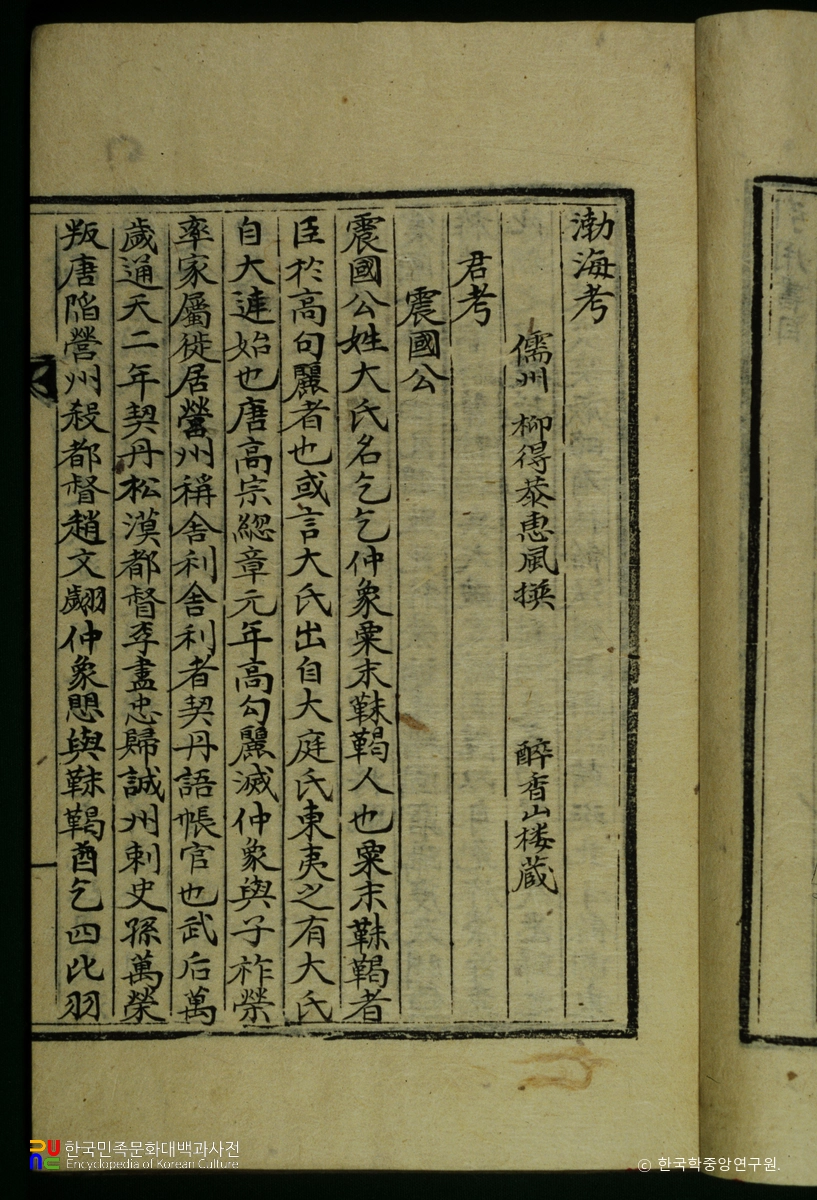 渤海考
儒州 柳得恭惠風撰 醉香山楼蔵
君考
震國公
震國公姓大氏名乞乞仲象粟末靺鞨人也粟末靺鞨者
臣於高句麗者也或言大氏出自大庭氏東夷之有大氏
自大連始也唐高宗緫章元年高勾麗滅仲象與子祚榮
率家屬徙居營州稱舍利舍利者契丹語帳官也武后萬
歲通天二年契丹松漠都督李盡忠歸誠州刺史孫萬榮
叛唐陷營州殺都督趙文翽仲象懼與靺鞨酋乞四比羽
한국민족문화대백과사전
Encyclopedia of Korean Culture
© 한국학중앙연구원.